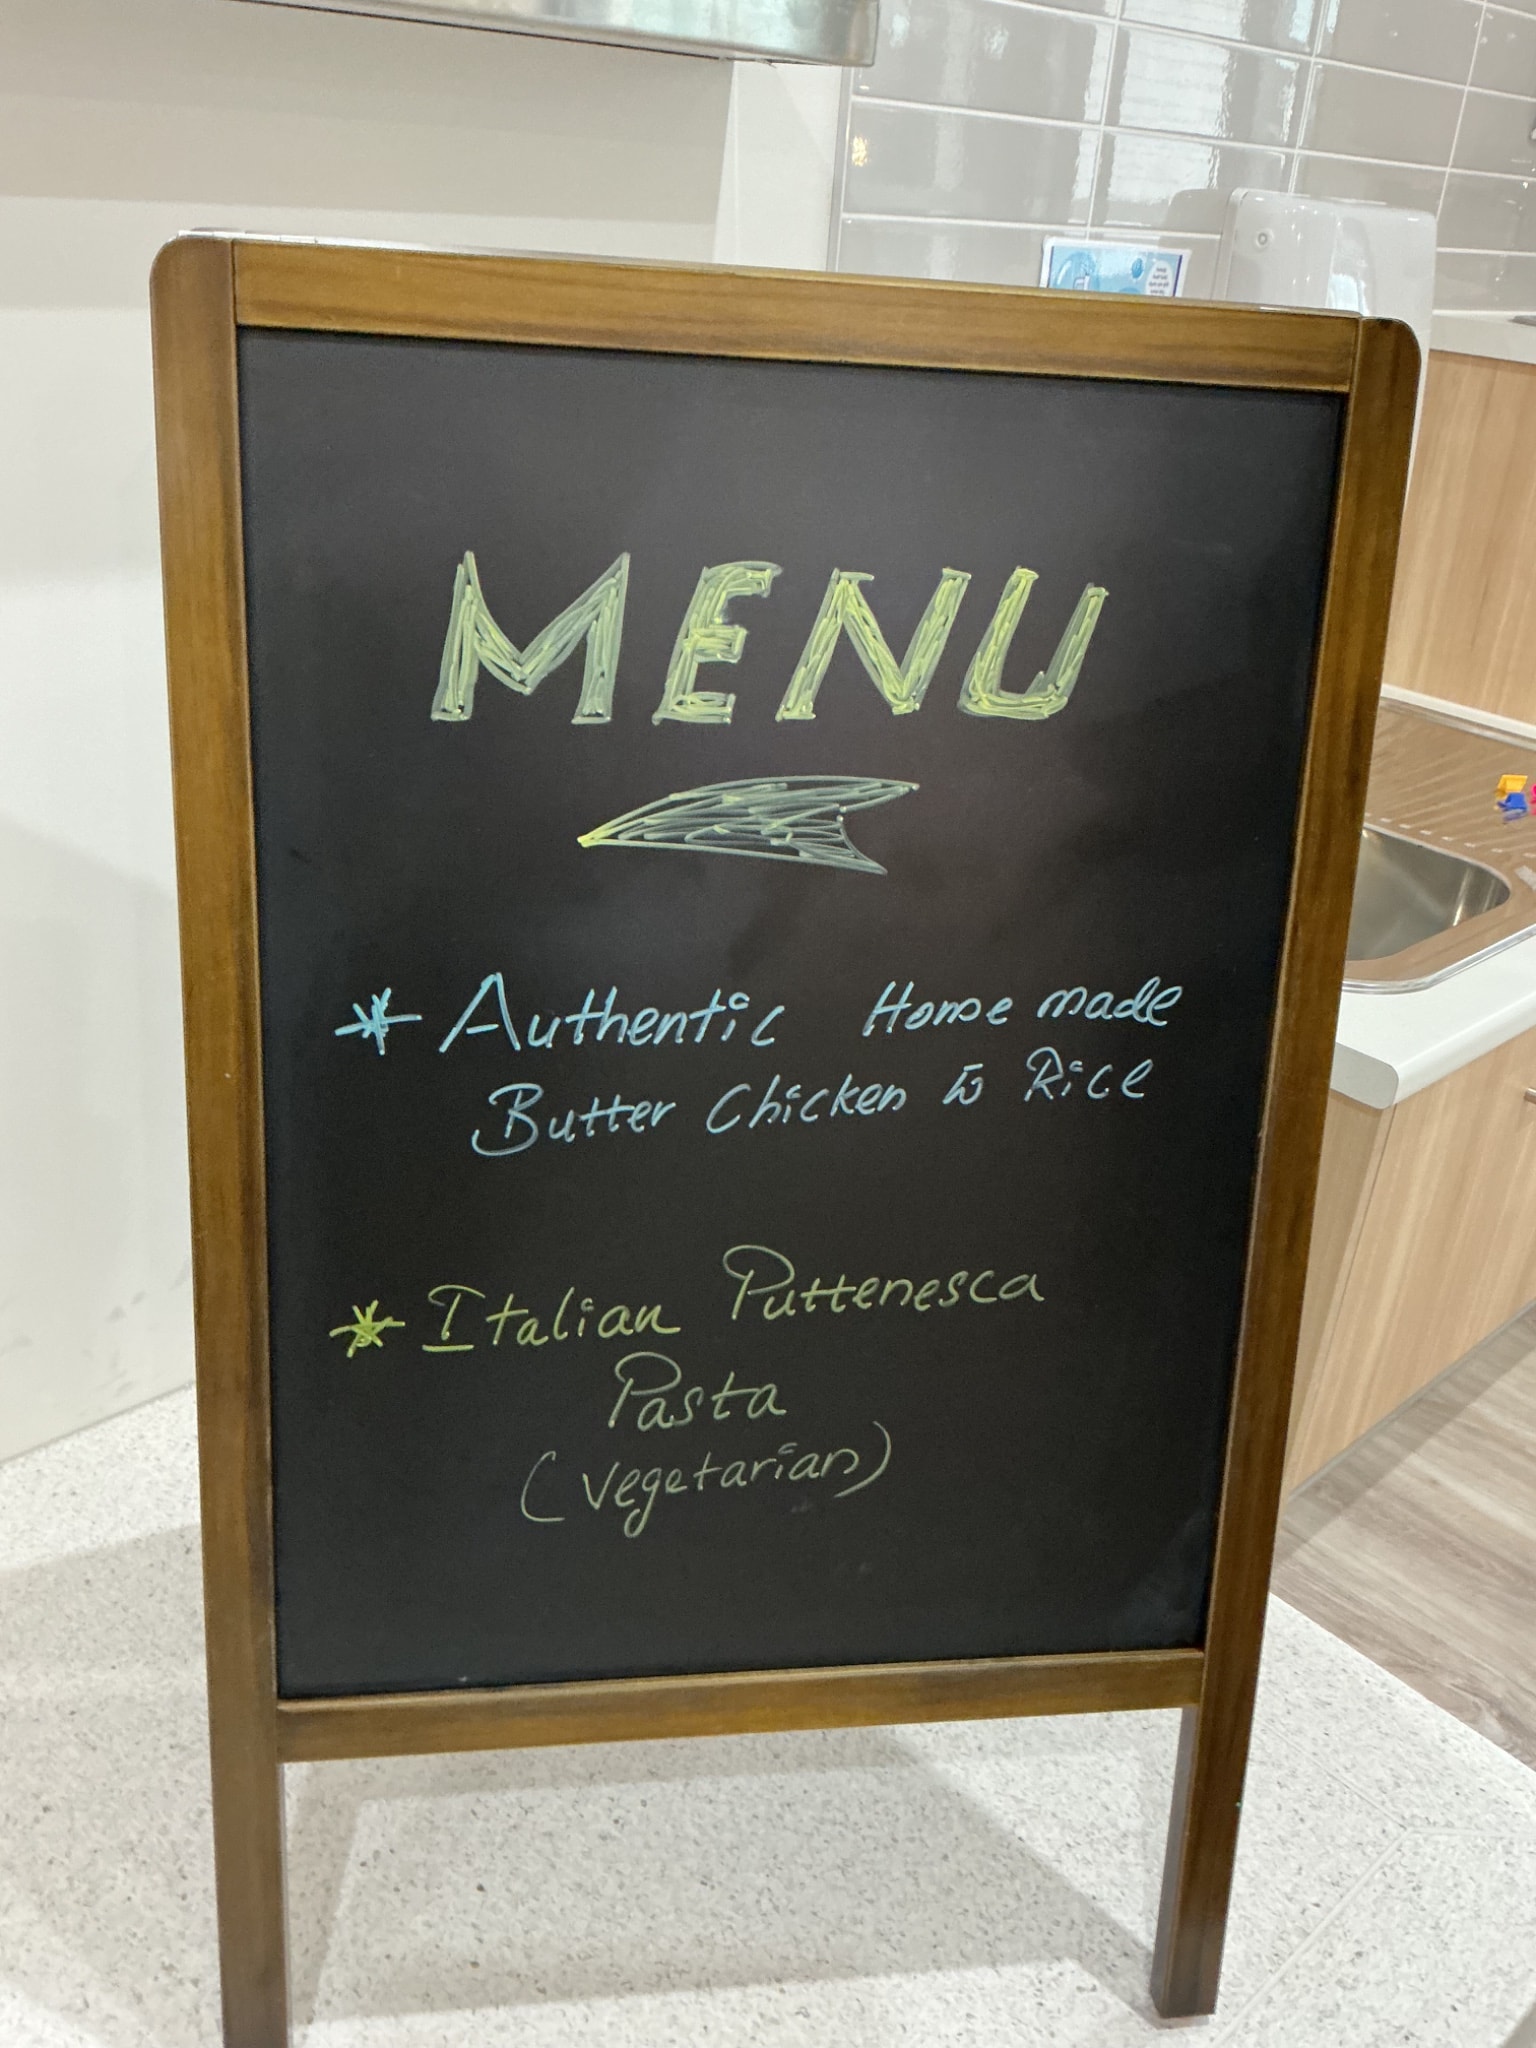 MENU
* Authentic Home made
Butter Chicken w Rice
* Italian Puttenesca
Pasta
(vegetarian)